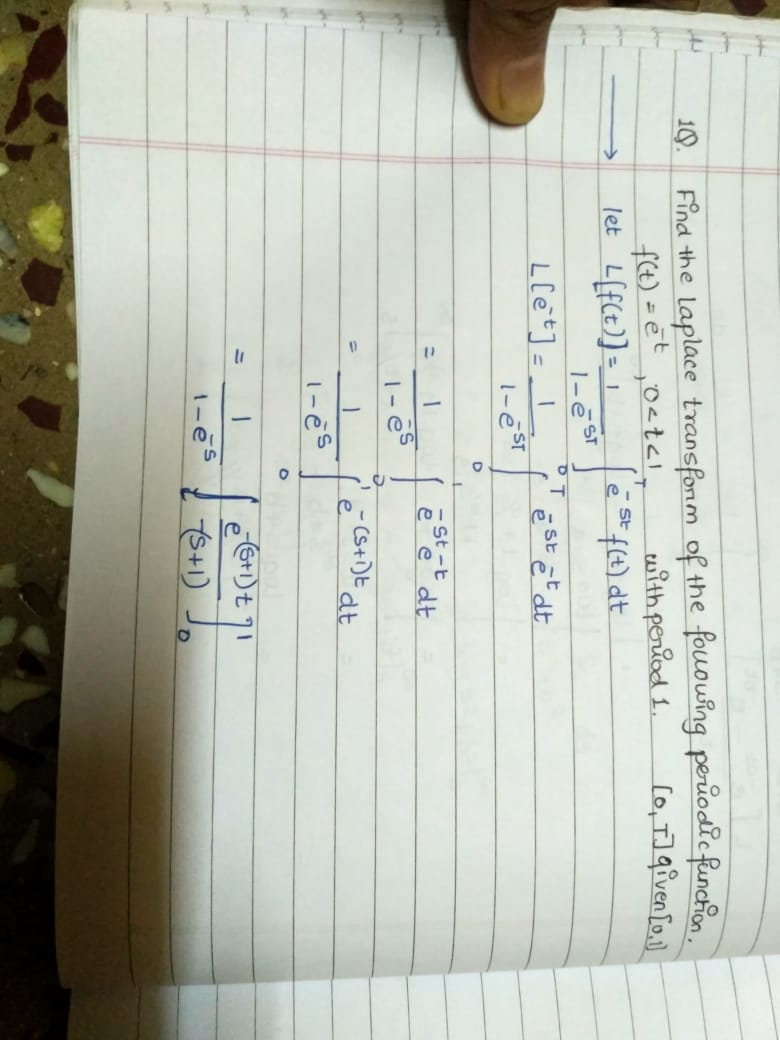 1Q. Find the laplace transform of the following periodic function.
f(t) = e^-t , 0<t<1 with period 1. [0, T] given [0,1]
→ let L[f(t)] = 1/(1-e^-ST) ∫_0^T e^-st f(t) dt
L[e^-t] = 1/(1-e^-ST) ∫_0^T e^-st e^-t dt
= 1/(1-e^-s) ∫_0^1 e^-st e^-t dt
= 1/(1-e^-s) ∫_0^1 e^-(s+1)t dt
= 1/(1-e^-s) [e^-(s+1)t/-(s+1)]_0^1